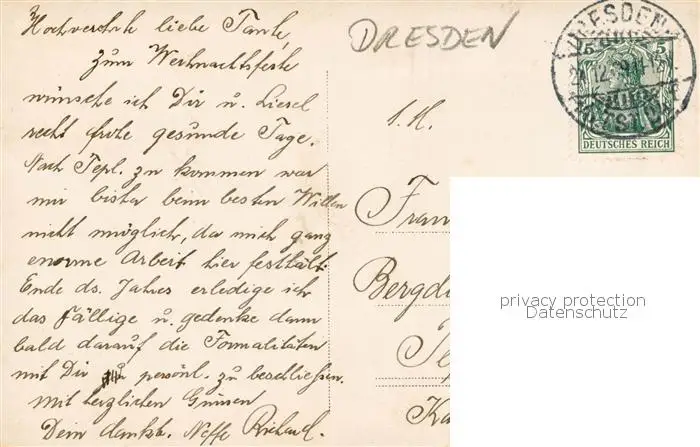 Hochverehrte liebe Tante,
zum Weihnachtsfeste
wünsche ich Dir u. Liesel
recht frohe gesunde Tage.
Nach Tepl. zu kommen war
mir bisher beim besten Willen
nicht möglich, da mich ganz
enorme Arbeit hier festhält.
Ende ds. Jahres erledige ich
das fällige u. gedenke dann
bald darauf die Formalitäten
mit Dir persönl. zu beschließen.
Mit herzlichen Grüssen
Dein dankb. Neffe Richard.
DRESDEN
DRESDEN
5 5
DEUTSCHES REICH
ALTST.
S. H.
Frau
Bergdi
Te
Ka
privacy protection
Datenschutz